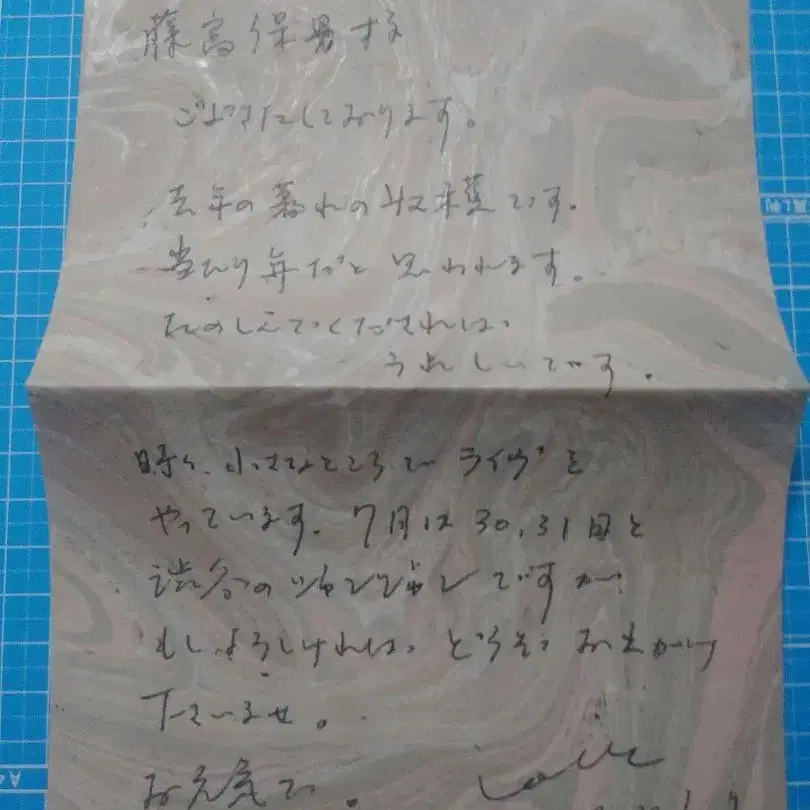 藤富保男さま
ごぶさたしております。
去年の暮れの収穫です。
当たり年だと思われます。
たのしんでくだされば、
うれしいです。
時々、小さなところでライヴを
やっています。7月は30,31日と
渋谷の ですが
もしよろしければ、どうぞ、おでかけ
下さいませ。
お元気で。